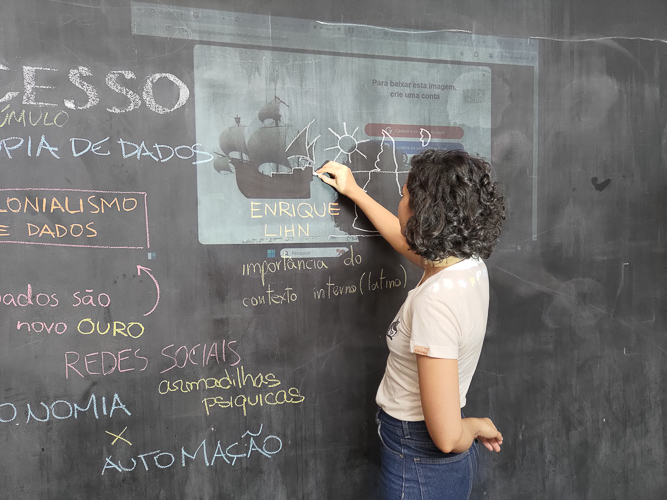 CESSO
ÚMULO
PIA DE DADOS
LONIALISMO
E DADOS
ados são
novo OURO
REDES SOCIAIS
armadilhas
psíquicas
O.NOMIA
X
AUTOMAÇÃO
Para baixar esta imagem,
crie uma conta
ENRIQUE
LIHN
importância do
contexto interno (latino)